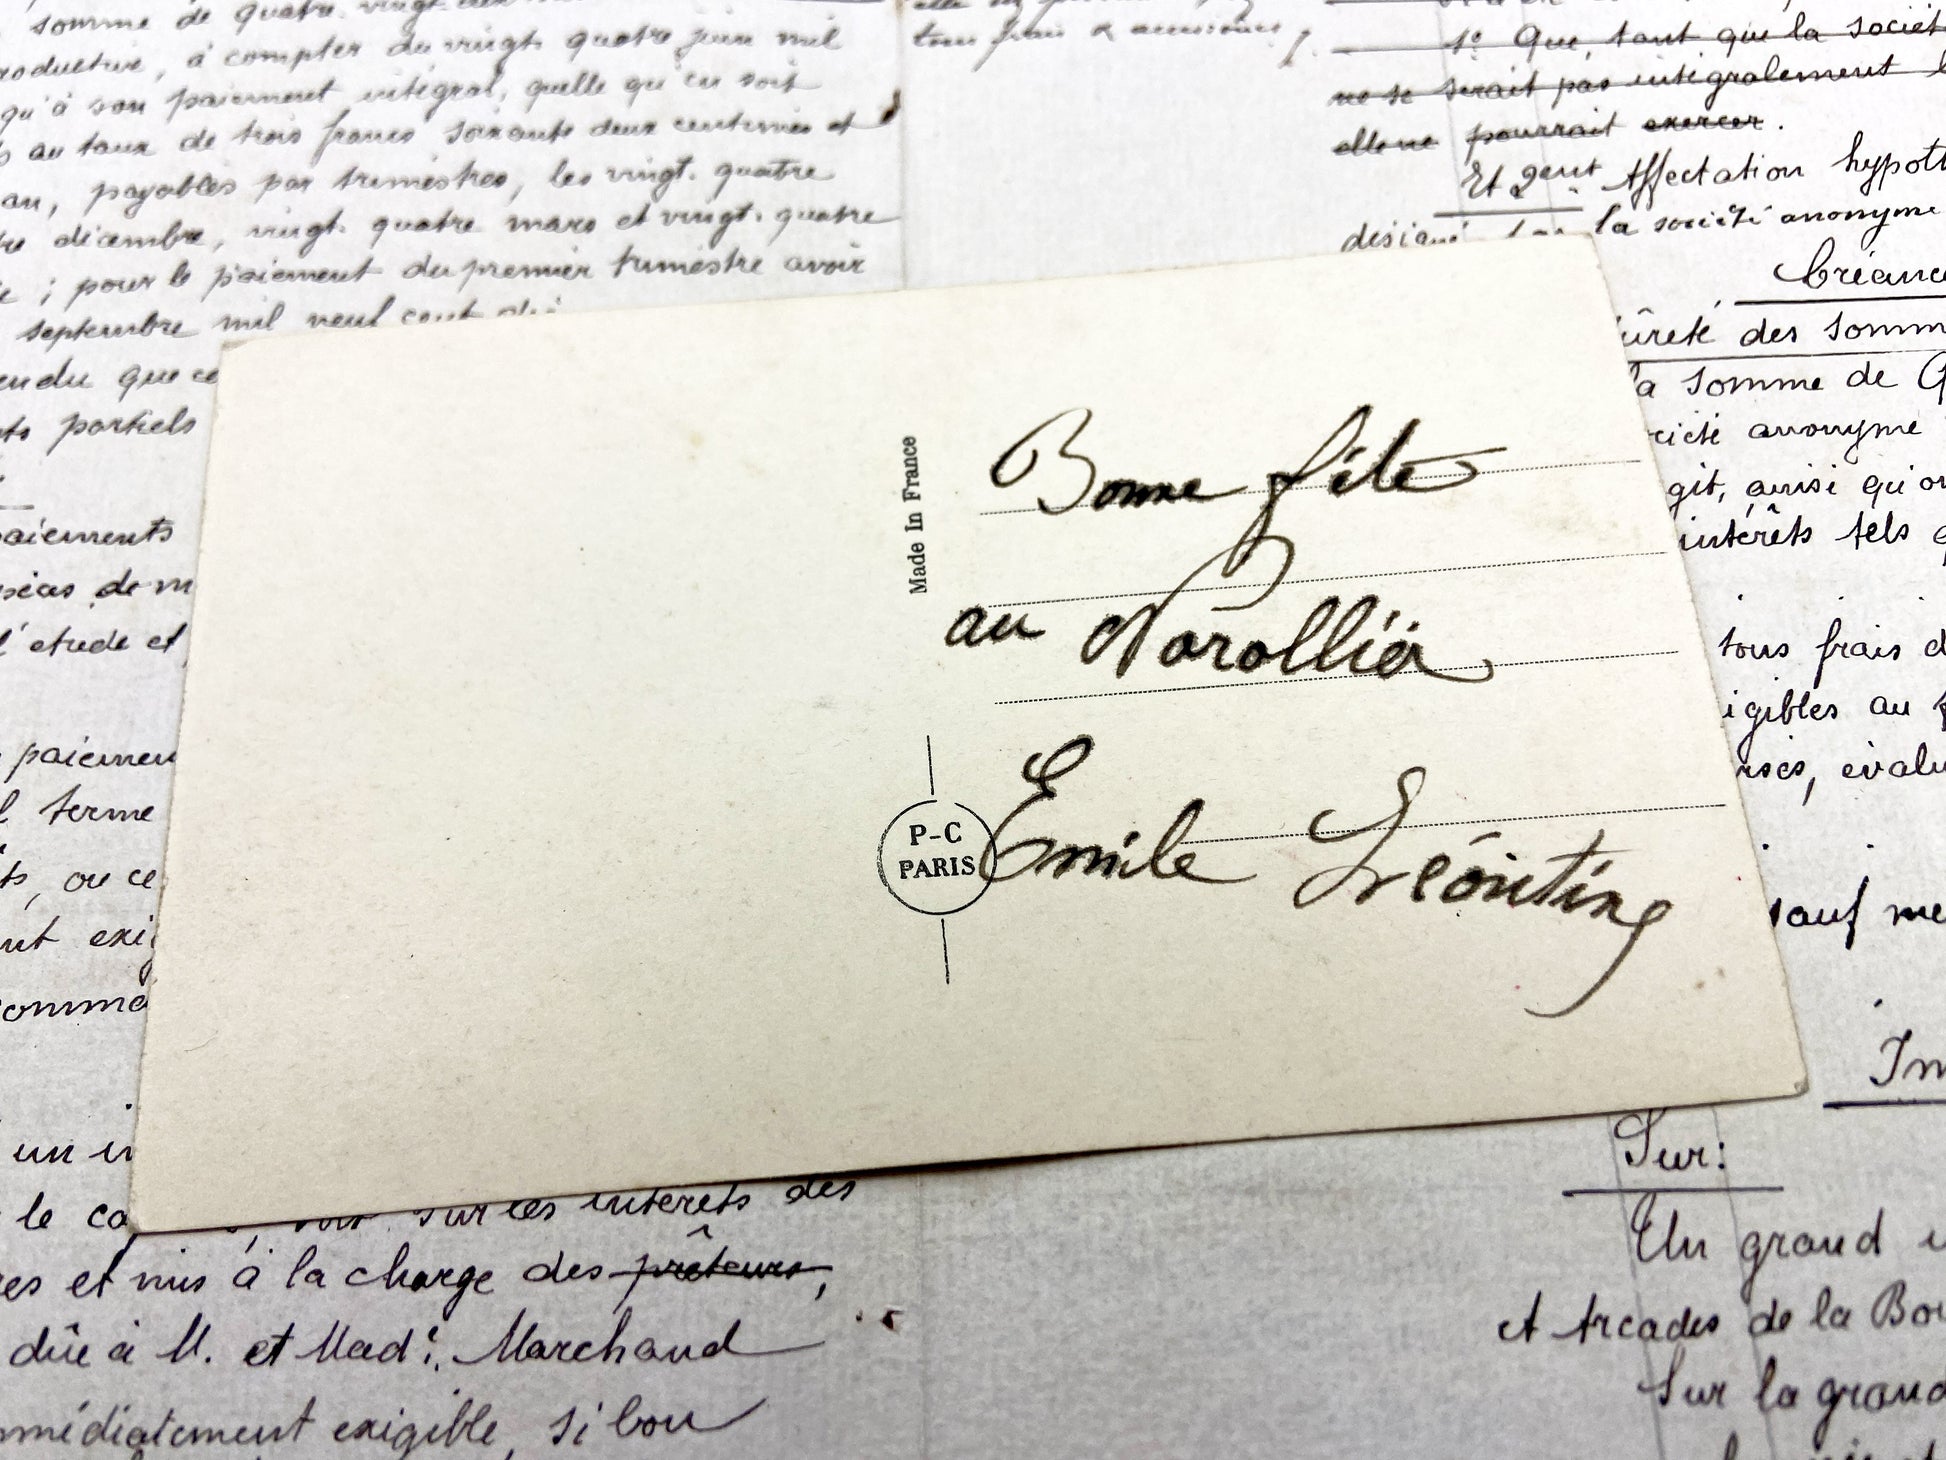 somme de quatre vingt
à compter du vingt quatre juin mil
qu'à son paiement intégral, quelle qu'en soit
au taux de trois francs soixante deux centimes et
an, payables par trimestres, les vingt quatre
décembre, vingt quatre mars et vingt quatre
; pour le paiement du premier trimestre avoir
septembre mil neuf cent
que ce
partiels
paiements
de m
l'étude et
paiemen
terme
ts, ou ce
exi
comma
un in
le ca
sur les intérêts des
res et mis à la charge des prêteurs,
dûe à M. et Made. Marchand
immédiatement exigible, si bon
tous frais & accessoires
1º Que, tant que la sociét
ne se serait pas intégralement
elle ne pourrait exercer.
Et 2ent Affectation hypoth
la société anonyme
Créance
sûreté des somm
la somme de
société anonyme
git, ainsi qu'on
intérêts tels q
tous frais d
igibles au
évalu
sauf me
Im
Sur:
Un grand
et Arcades de la Bou
Sur la grand
Made In France
Bonne fête
au
P-C
PARIS
Emile Léontine